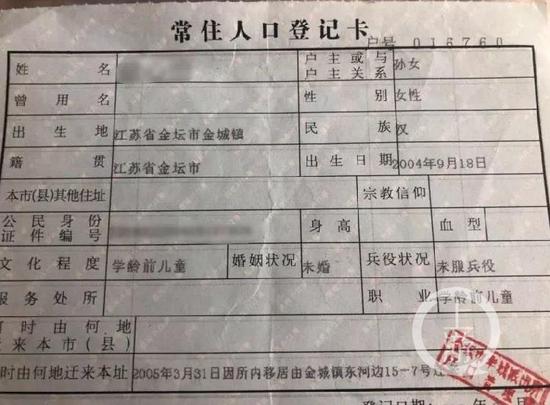 常住人口登记卡
户号 016760
姓名 户主或与户主关系 孙女
曾用名 性别 女性
出生地 江苏省金坛市金城镇 民族 汉
籍贯 江苏省金坛市 出生日期 2004年9月18日
本市(县)其他住址 宗教信仰
公民身份证件编号 身高 血型
文化程度 学龄前儿童 婚姻状况 未婚 兵役状况 未服兵役
服务处所 职业 学龄前儿童
时由何地
来本市(县)
时由何地迁来本址 2005年3月31日因所内移居由金城镇东河边15-7号迁